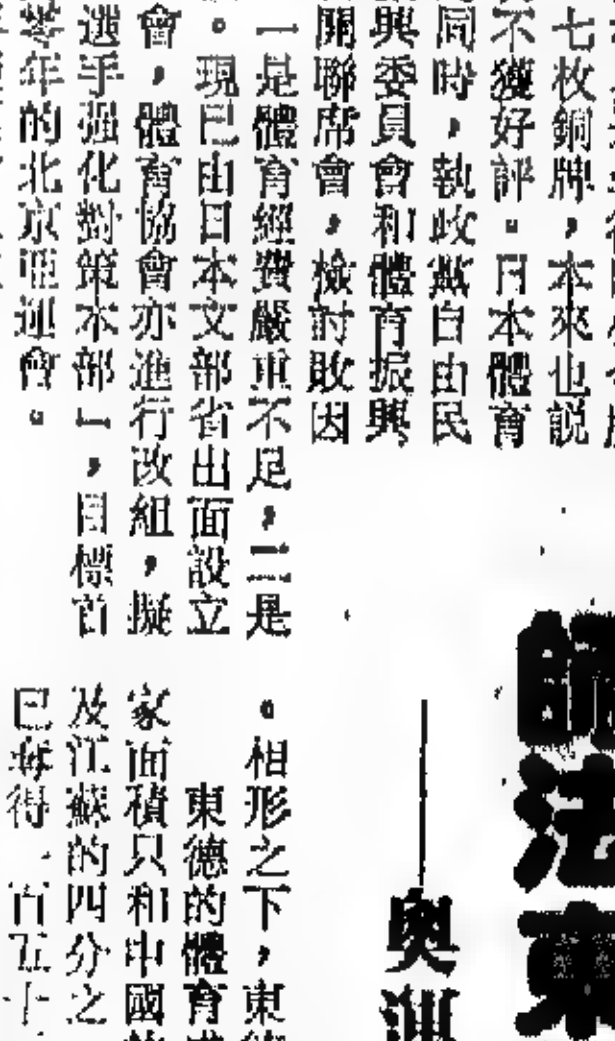 七枚銅牌，本來也說
不獲好評。日本體育
同時，執政黨自由民
興委員會和體育振興
開聯席會，檢討敗因
一是體育經費嚴重不足，二是
。現已由日本文部省出面設立
會，體育協會亦進行改組，擬
選手强化對策本部」，目標首
零年的北京亞運會。
師法東
奧運
。相形之下，東
東德的體育
家面積只和中國
及江蘇的四分之
已奪得一百五十